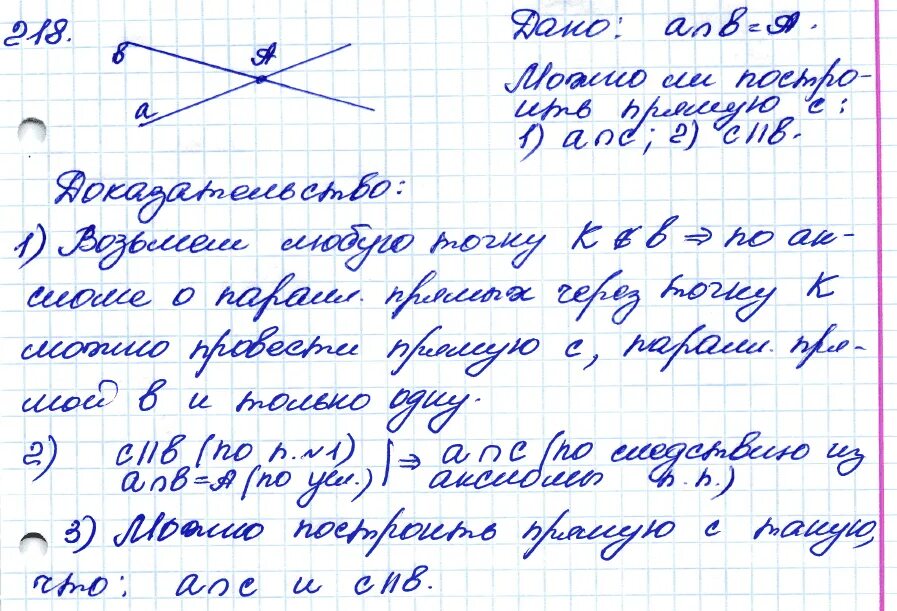 218.
в
A
a
Дано: a∩в=A.
Можно ли постро-
ить прямую с:
1) a∩c; 2) c||в.
Доказательство:
1) Возьмем любую точку K ∉ в ⇒ по ак-
сиоме о паралл. прямых через точку K
можно провести прямую с, паралл. пря-
мой в и только одну.
2) c||в (по п.№1)
a∩в=A (по усл.)
⇒ a∩c (по следствию из
аксиомы п.п.)
3) Можно построить прямую с такую,
что: a∩c и c||в.